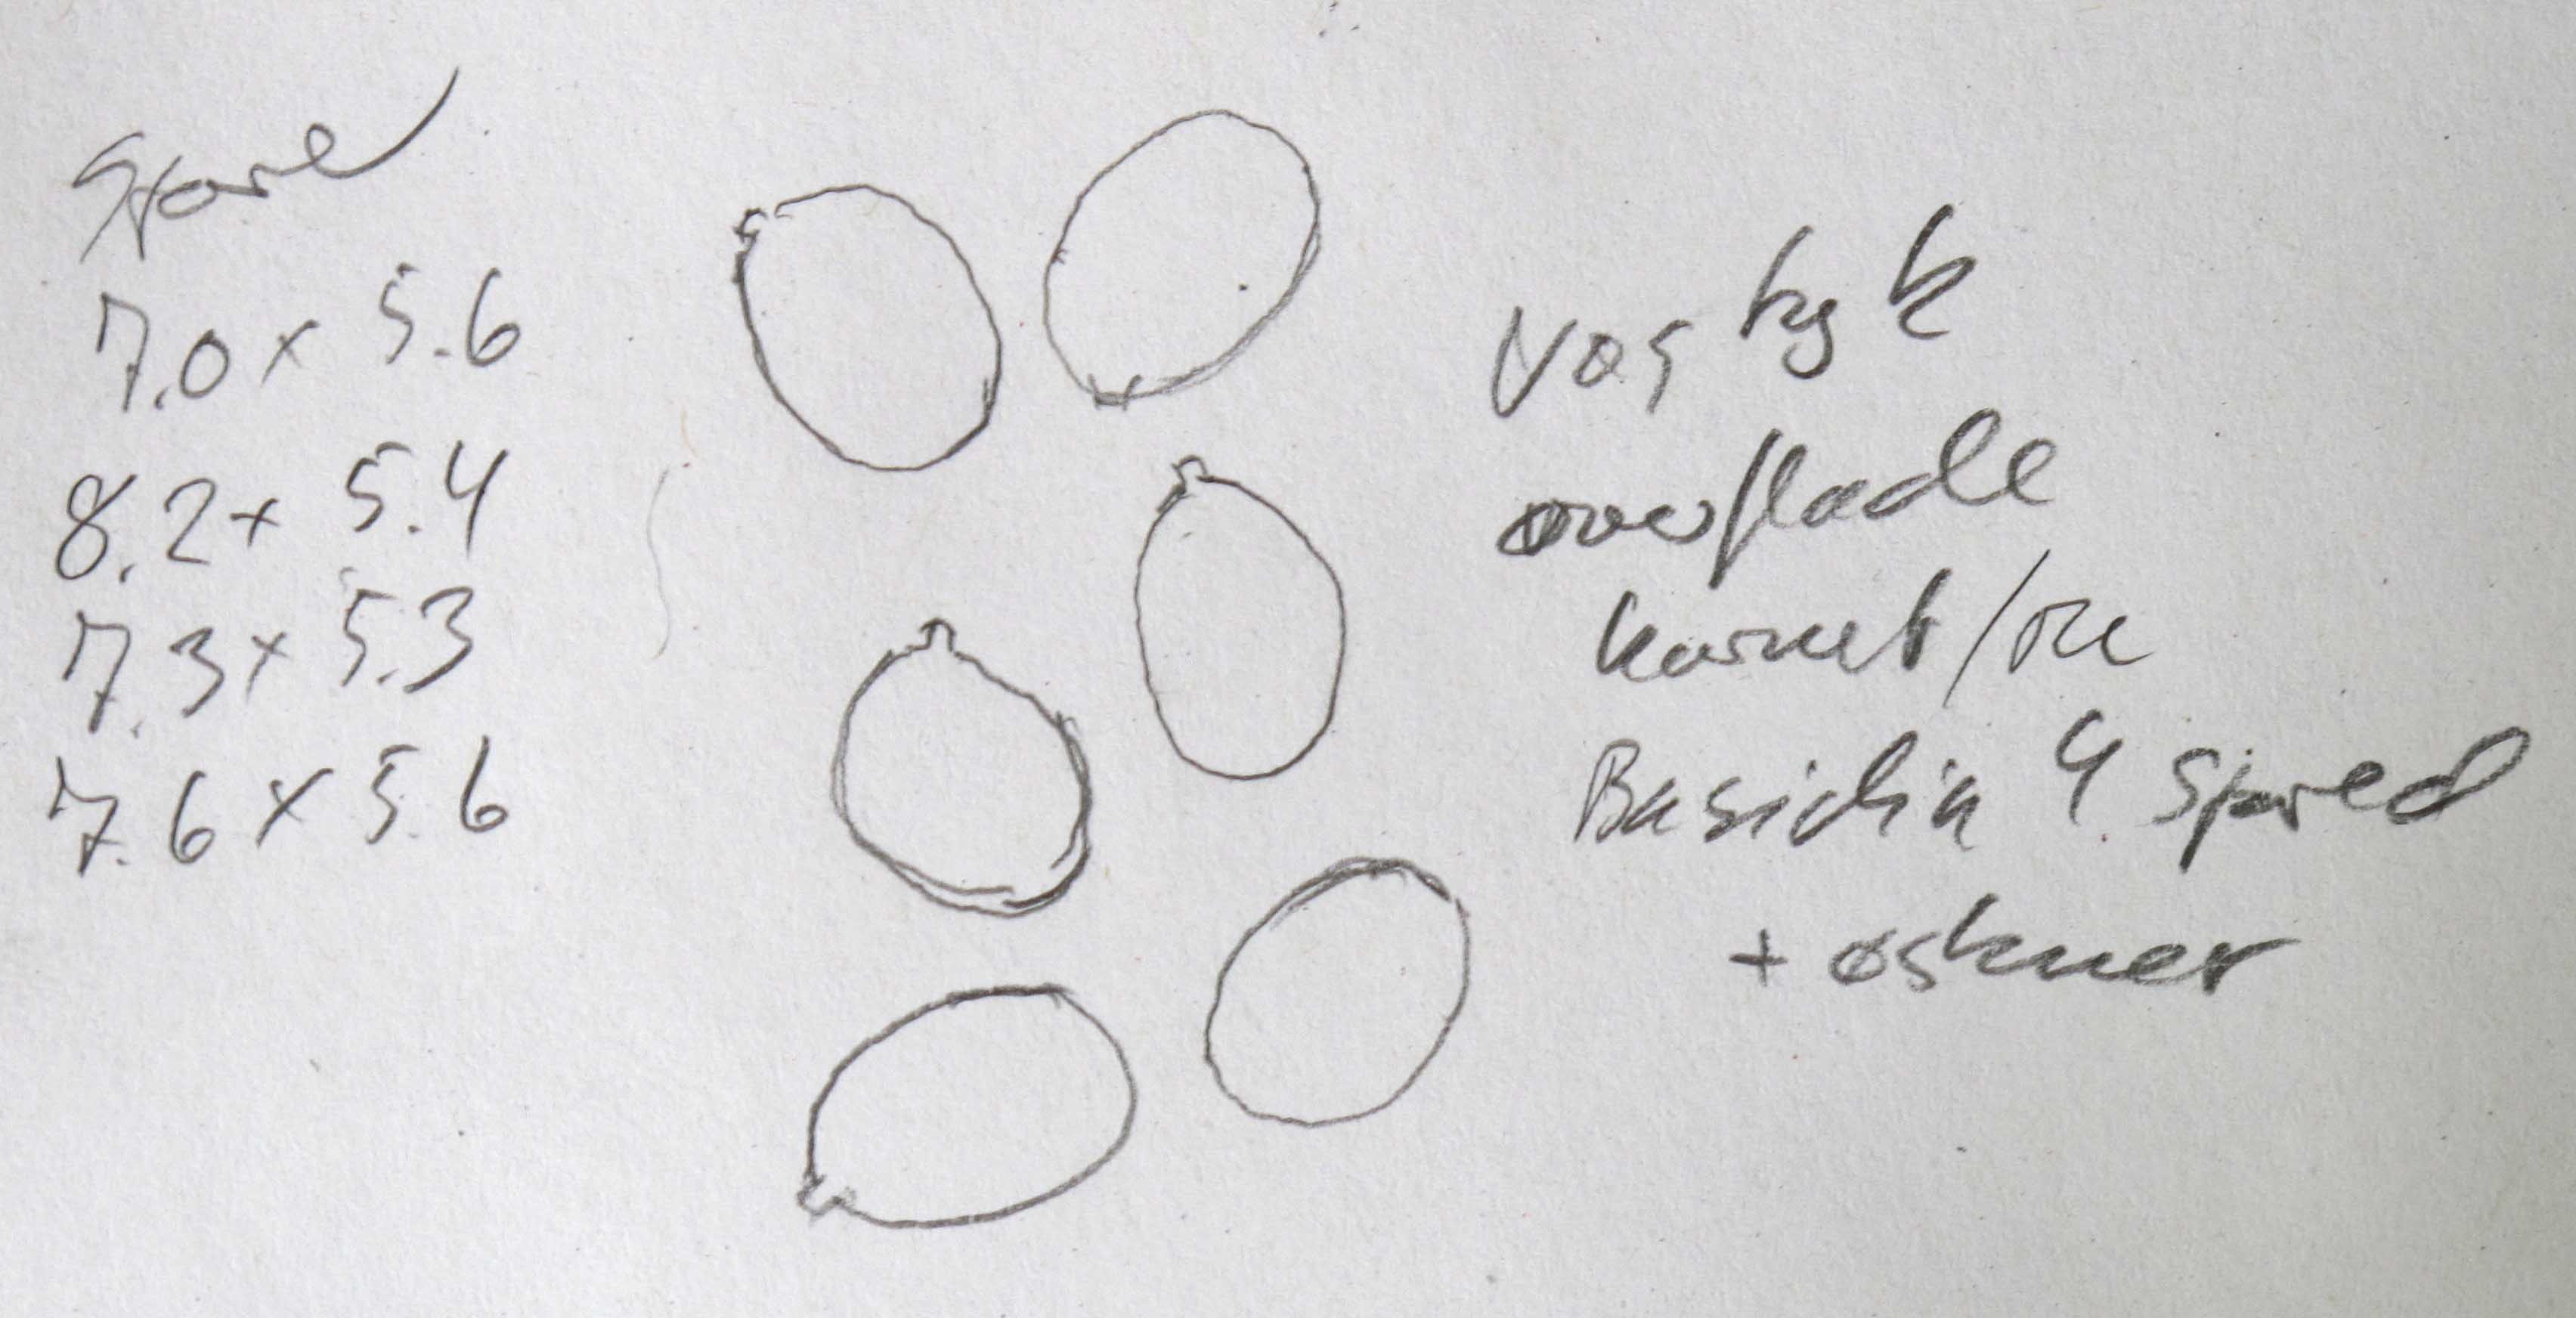 Spore
7.0 x 5.6
8.2 x 5.4
7.3 x 5.3
7.6 x 5.6
overflade
kornet/ru
Basidia 4 spored
+ øskner